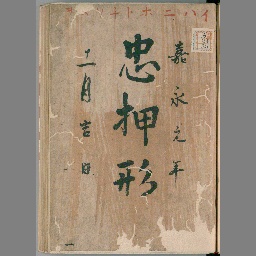 イハニホトチ
嘉永元年
忠押形
十二月吉日
一